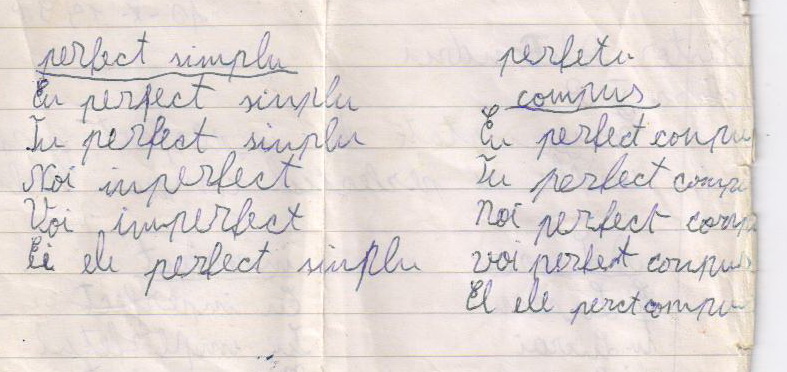 perfect simplu
Eu perfect sinplu
Tu perfect sinplu
Noi inperfect
Voi imperfect
Ei ele perfect sinplu
perfetu
compus
Eu perfect conpu
Tu perfect comp
Noi perfect comp
voi perfect conpus
El ele perct compu